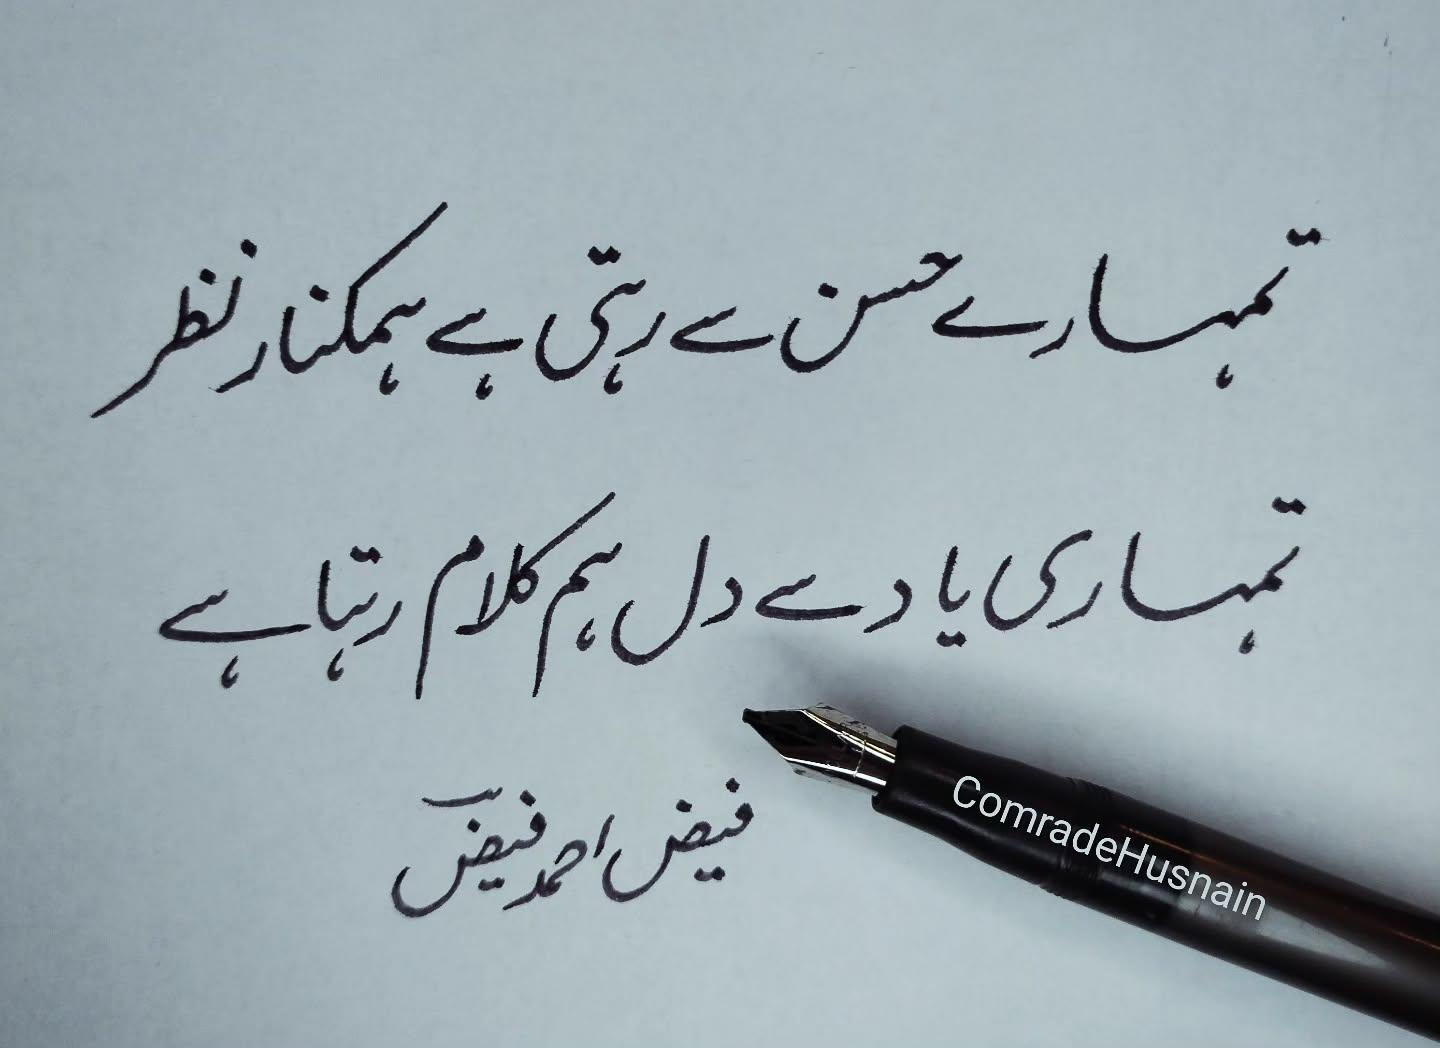 تمہارے حسن سے رہتی ہے ہمکنار نظر
تمہاری یاد سے دل ہم کلام رہتا ہے
فیض احمد فیضؔ
ComradeHusnain